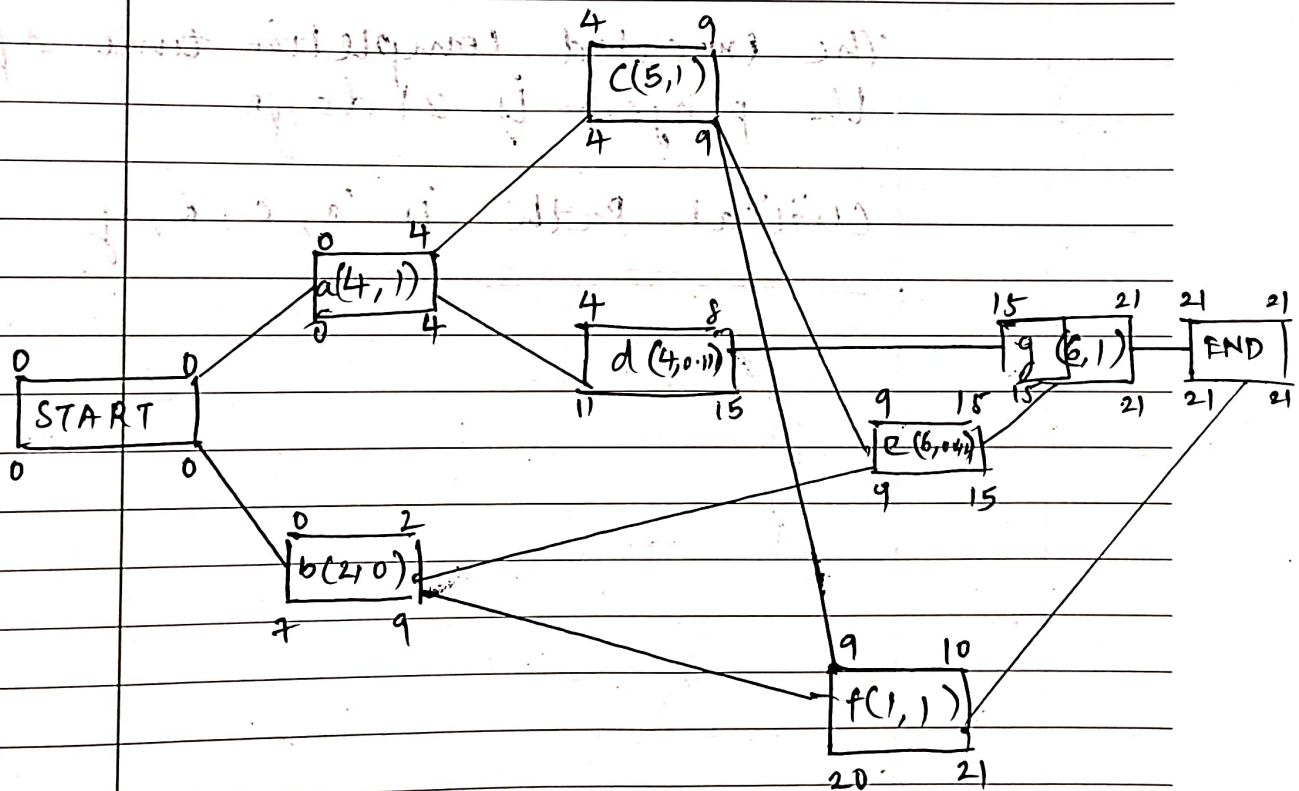 4 9
C(5,1)
4 9
0 4
a(4,1)
0 4
4 8
d(4,0.11)
11 15
15 21
g (6,1)
15 21
21 21
END
21 21
0 0
START
0 0
9 15
9 15
0 2
b(2,0)
7 9
9 10
f(1,1)
20 21